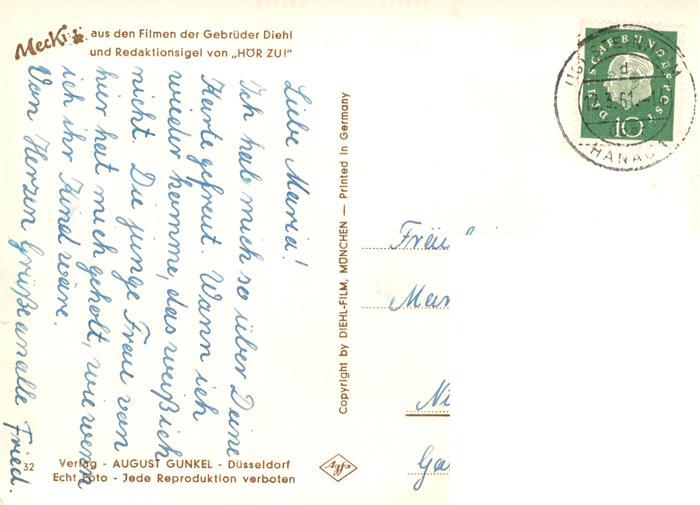 Mecki aus den Filmen der Gebrüder Diehl
und Redaktionsigel von „HÖR ZU!"
Liebe Maria!
Ich hab mich so über Deine
Karte gefreut. Wann ich
wieder komme, das weiß ich
nicht. Die junge Frau von
hier hat mich geholt, wie wenn
ich ihr Kind wäre.
Von Herzen Grüße an alle Fried.
32
Verlag - AUGUST GUNKEL - Düsseldorf
Echt Foto - Jede Reproduktion verboten
Copyright by DIEHL-FILM, MÜNCHEN — Printed in Germany
Agfa
DEUTSCHE BUNDESPOST
10
d
12.3.61.-1
HANAU 1
Fräul
Mar
Ni
Ga